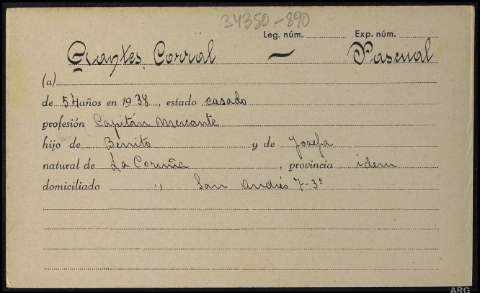 34350-890
Leg. núm. Exp. núm.
Corral — Pascual
(a)
de 54 años en 1938, estado casado
profesión Capitán Mercante
hijo de Benito y de Josefa
natural de La Coruña, provincia idem
domiciliado " San Andrés 7-3º
ARG